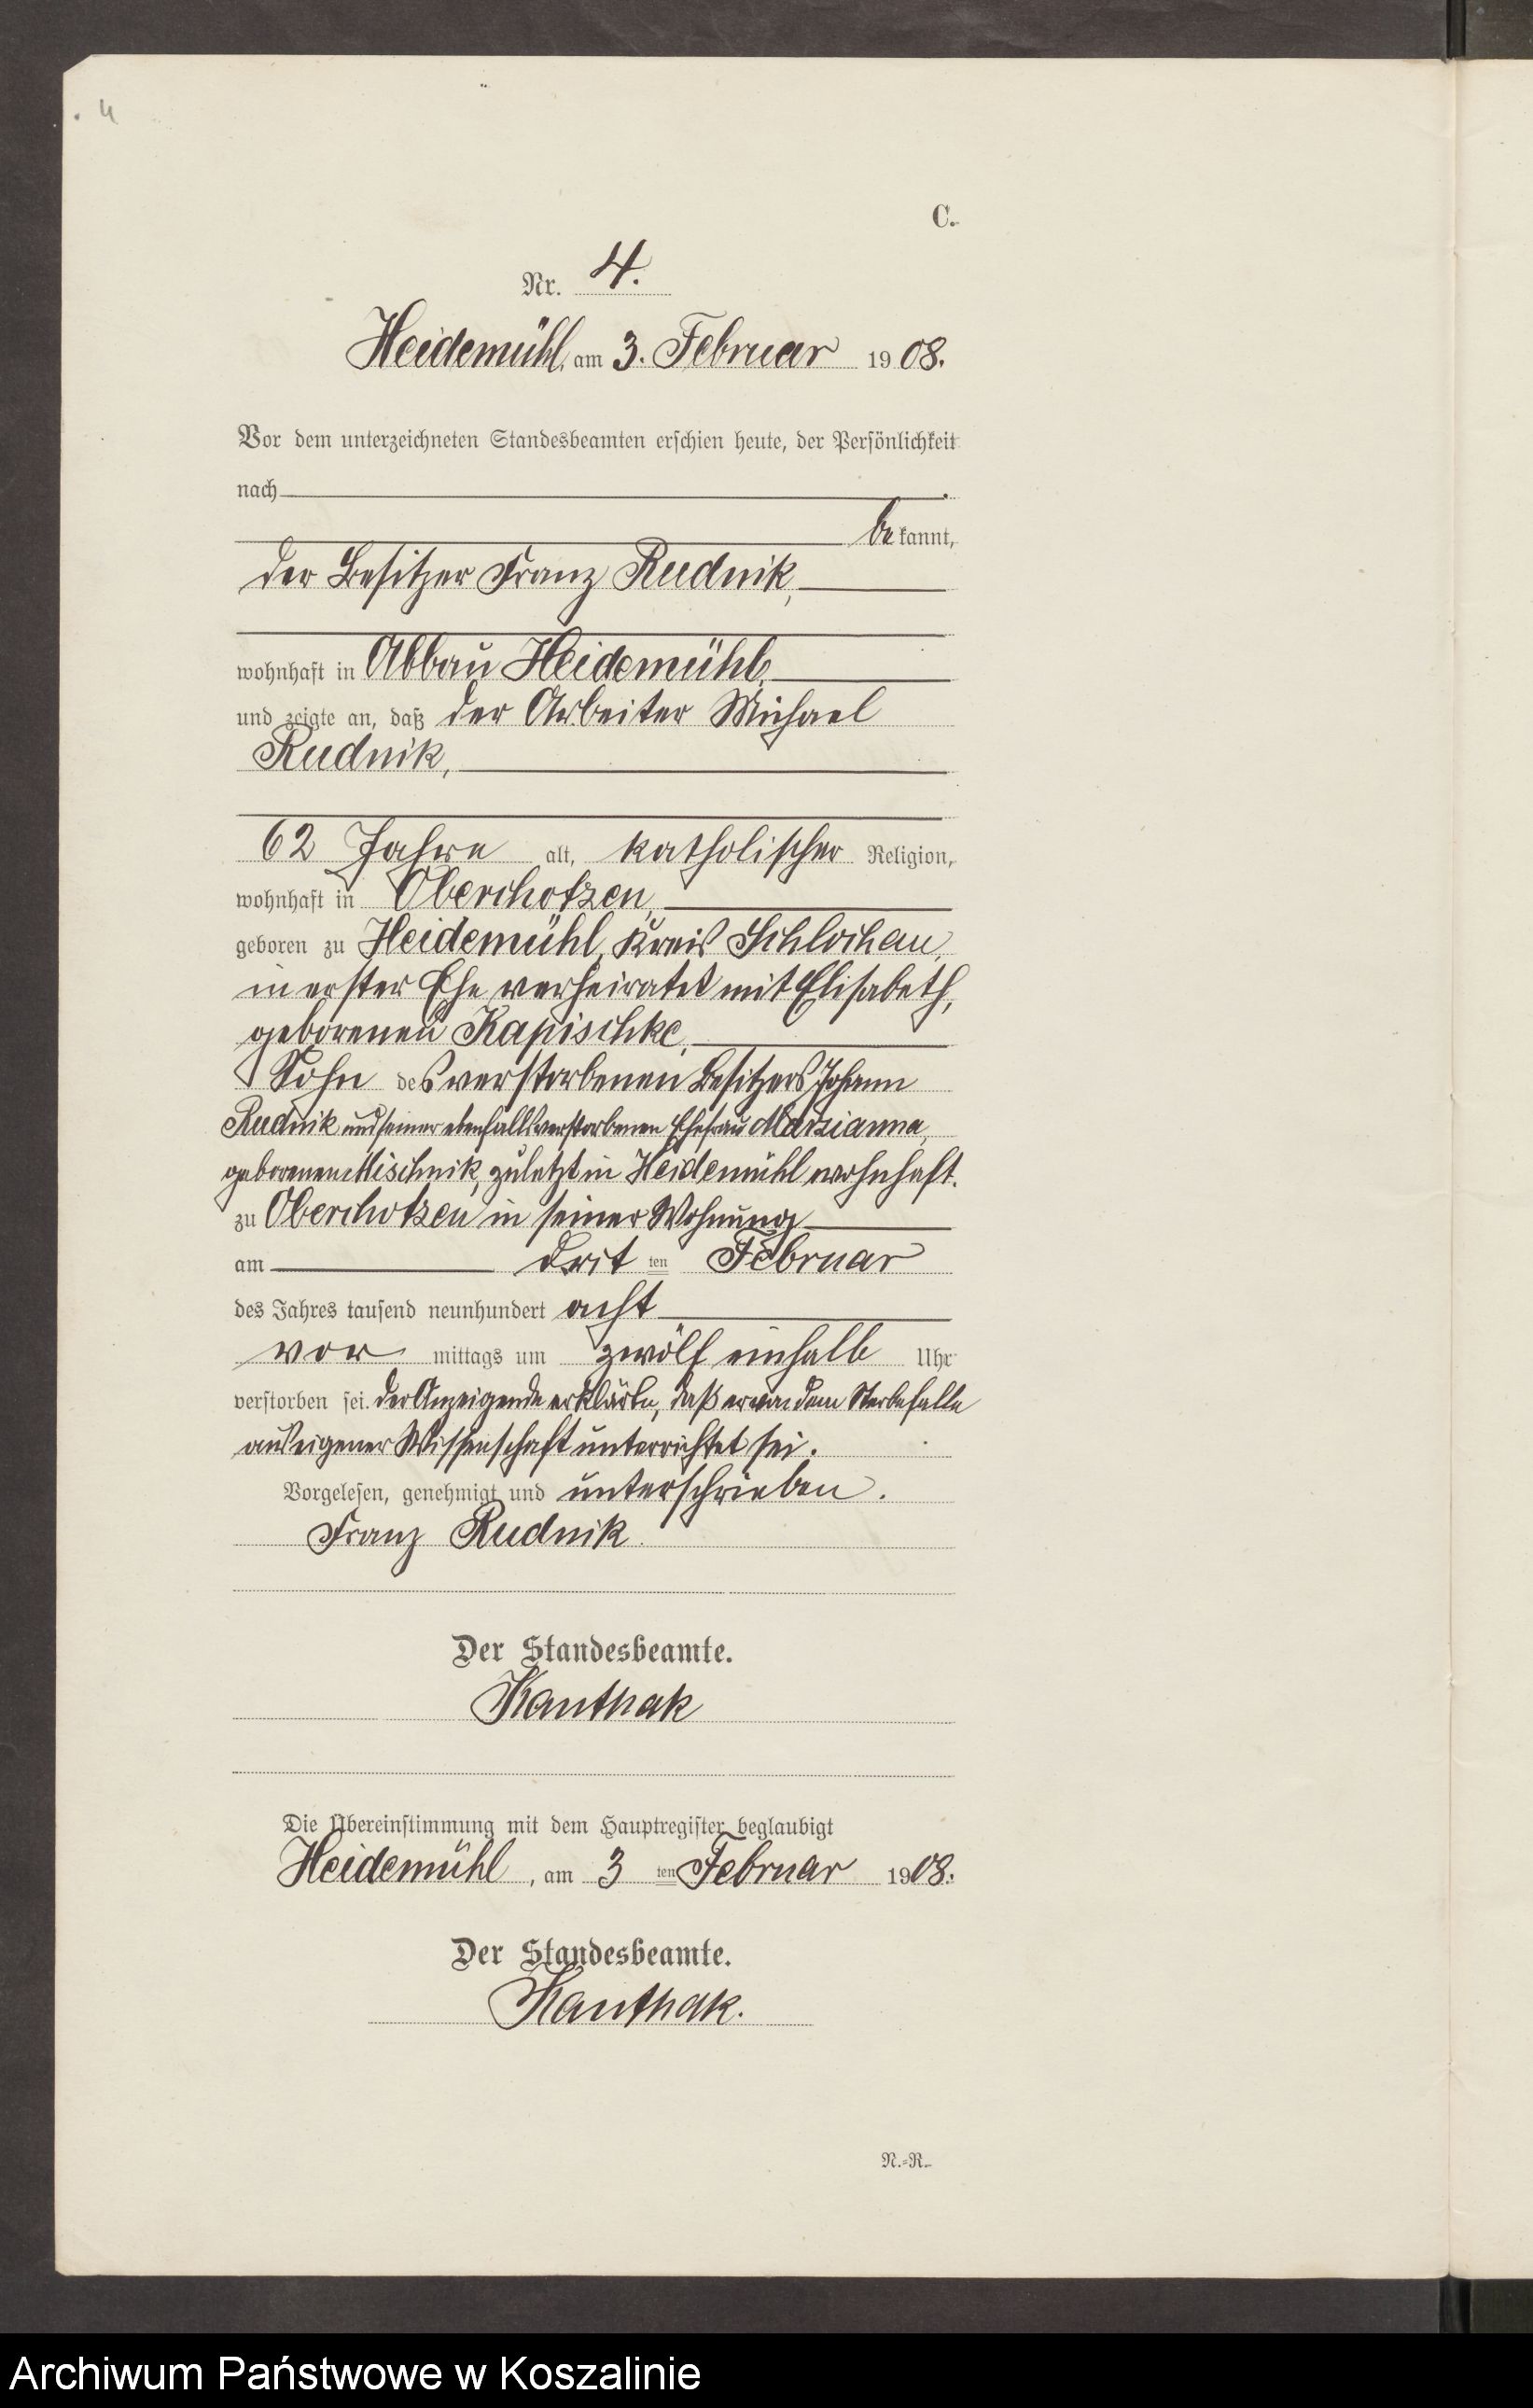 4
C.
Nr. 4.
Heidemühl, am 3. Februar 1908.
Vor dem unterzeichneten Standesbeamten erschien heute, der Persönlichkeit
nach
bekannt,
der Besitzer Franz Rudnik,
wohnhaft in Abbau Heidemühl,
und zeigte an, daß der Arbeiter Michael
Rudnik,
62 Jahre alt, katholischer Religion,
wohnhaft in Oberchotzen,
geboren zu Heidemühl, Kreis Schlochau,
in erster Ehe verheiratet mit Elisabeth,
geborenen Kapischke,
Sohn des verstorbenen Besitzers Johann
Rudnik und seiner ebenfalls verstorbenen Ehefrau Marzianna,
geborenen Mischnik, zuletzt in Heidemühl wohnhaft.
zu Oberchotzen in seiner Wohnung
am drit ten Februar
des Jahres tausend neunhundert acht
vor mittags um zwölf einhalb Uhr
verstorben sei. Der Anzeigende erklärte, daß er von dem Sterbefalle
aus eigener Wissenschaft unterrichtet sei.
Vorgelesen, genehmigt und unterschrieben.
Franz Rudnik.
Der Standesbeamte.
Kanthak
Die Übereinstimmung mit dem Hauptregister beglaubigt
Heidemühl, am 3 ten Februar 1908.
Der Standesbeamte.
Kanthak.
N.=R.
Archiwum Państwowe w Koszalinie